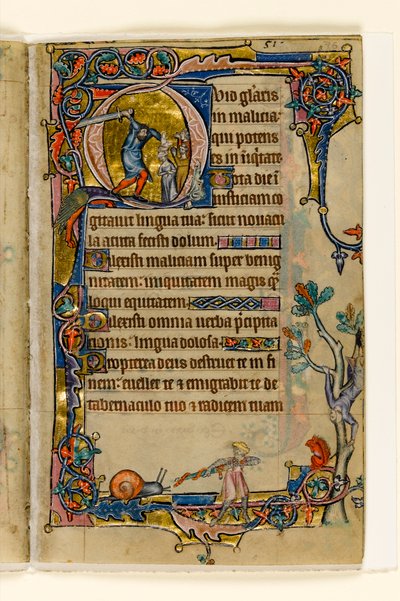 51
Quid gl̃aris
in malicia:
qui potens
es in iniq̃tate
Tota die i
iusticiam co
gitauit lingua tua: sicut nouacu
la acuta fecisti dolum
Dilexisti maliciam super benig
nitatem: iniquitatem magis q̃
loqui equitatem
Dilexisti omnia uerba p̃cipita
tionis: lingua dolosa
Propterea deus destruet te in fi
nem: euellet te & emigrabit te de
tabernaculo tuo & radicem tuam